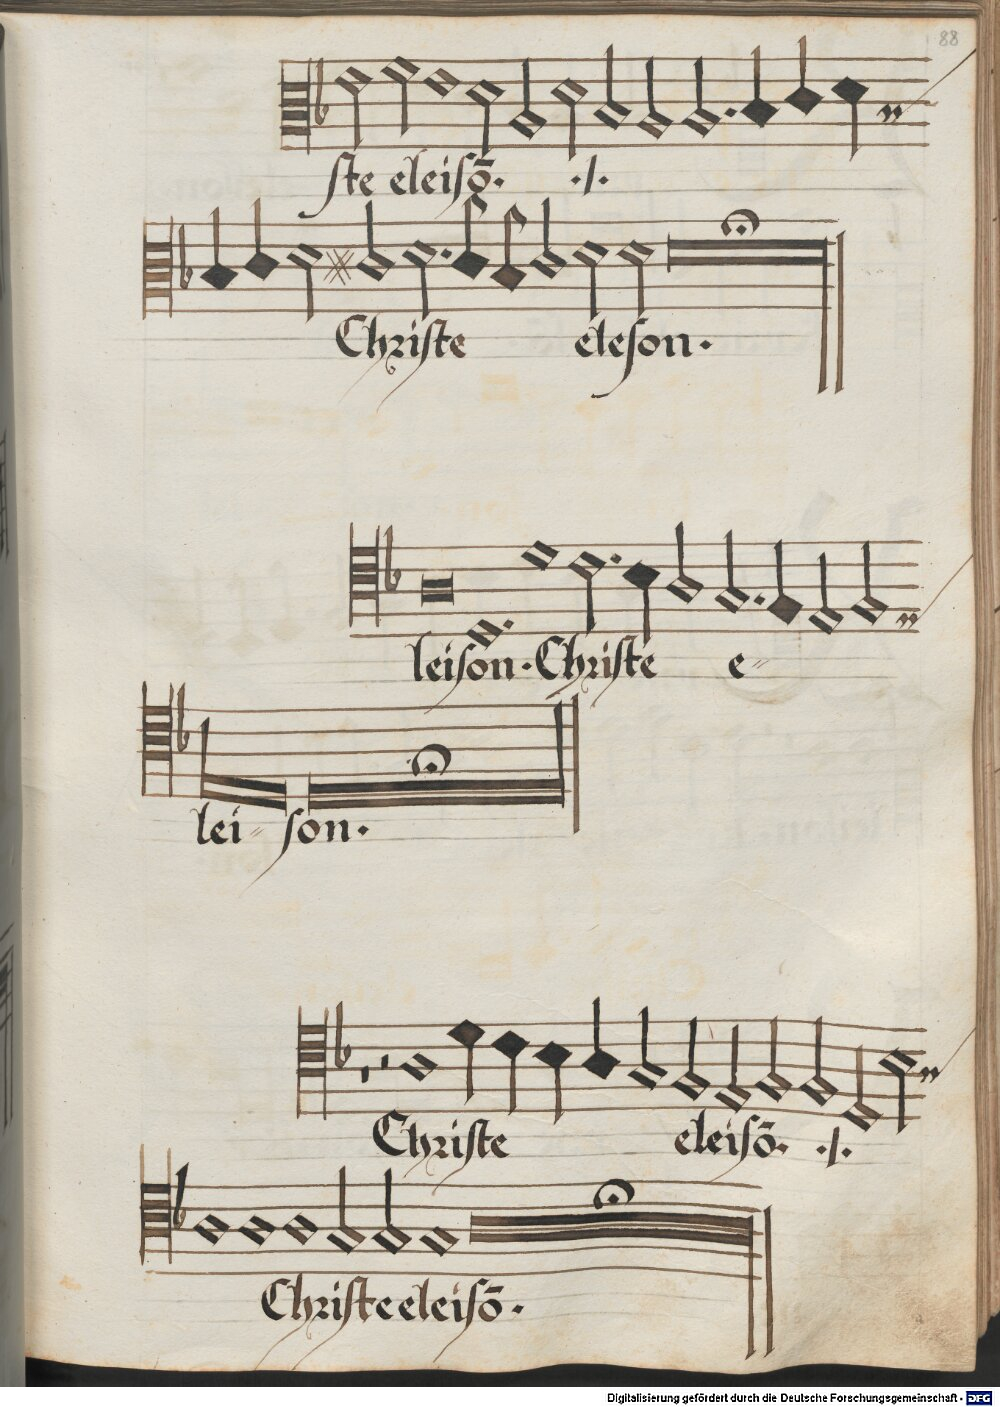 88
ste eleisō. ./.
Christe eleson.
leison. Christe e-
lei-son.
Christe eleisō. ./.
Christe eleisō.
Digitalisierung gefördert durch die Deutsche Forschungsgemeinschaft - DFG